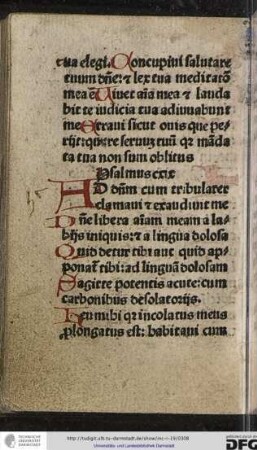 tua elegi. Concupiui salutare
tuum dñe: & lex tua meditatõ
mea ẽ Uiuet aĩa mea & lauda
bit te iudicia tua adiuuabunt
me Erraui sicut ouis que pe-
rijt: quere seruũ tuũ qr mãda
ta tua non sum oblitus
Psalmus cxix
AD dñm cum tribularer
clamaui & exaudiuit me
Dñe libera aĩam meam a la-
bijs iniquis: & a lingua dolosa
Quid detur tibi aut quid ap-
ponat tibi: ad linguã dolosam
Sagitte potentis acute: cum
carbonibus desolatorijs.
Heu mihi qr incolatus meus
plongatus est: habitaui cum
TECHNISCHE
UNIVERSITÄT
DARMSTADT
Universitäts- und Landesbibliothek Darmstadt
DFG